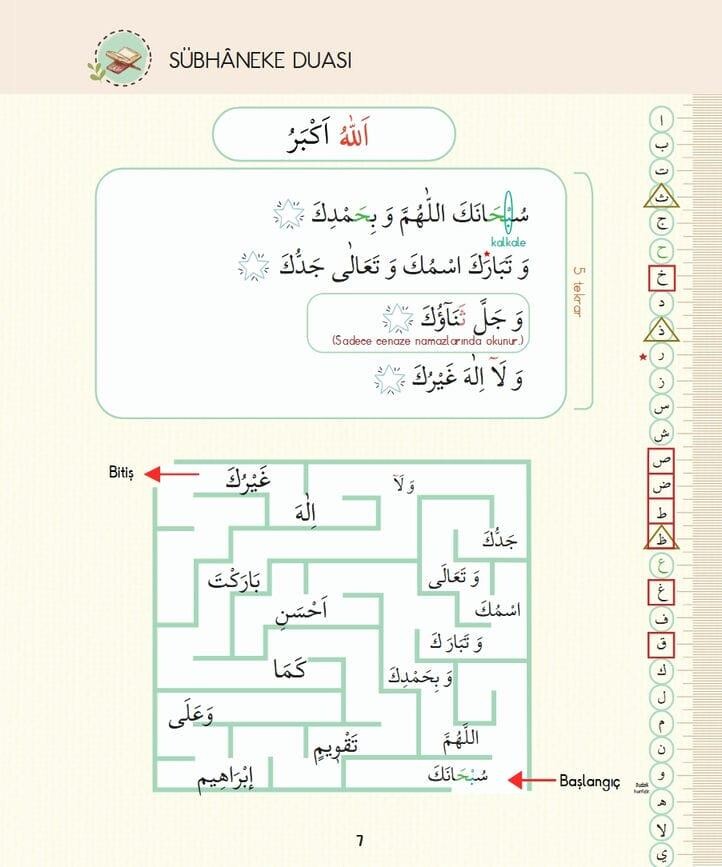 SÜBHÂNEKE DUASI
اَللّٰهُ اَكْبَرُ
سُبْحَانَكَ اللّٰهُمَّ وَ بِحَمْدِكَ
kalkale
وَ تَبَارَكَ اسْمُكَ وَ تَعَالٰى جَدُّكَ
وَ جَلَّ ثَنَآؤُكَ
(Sadece cenaze namazlarında okunur.)
وَ لَآ اِلٰهَ غَيْرُكَ
5 tekrar
Bitiş
غَيْرُكَ
وَ لَآ
اِلٰهَ
جَدُّكَ
بَارَكْتَ
وَ تَعَالَى
اَحْسَنِ
اسْمُكَ
وَ تَبَارَكَ
كَمَا
وَ بِحَمْدِكَ
وَعَلَى
تَقْوِيمٍ
اللّٰهُمَّ
إِبْرَاهِيم
سُبْحَانَكَ
Başlangıç
7
ا
ب
ت
ث
ج
ح
خ
د
ذ
ر
ز
س
ش
ص
ض
ط
ظ
ع
غ
ف
ق
ك
ل
م
ن
و
ه
لا
ي